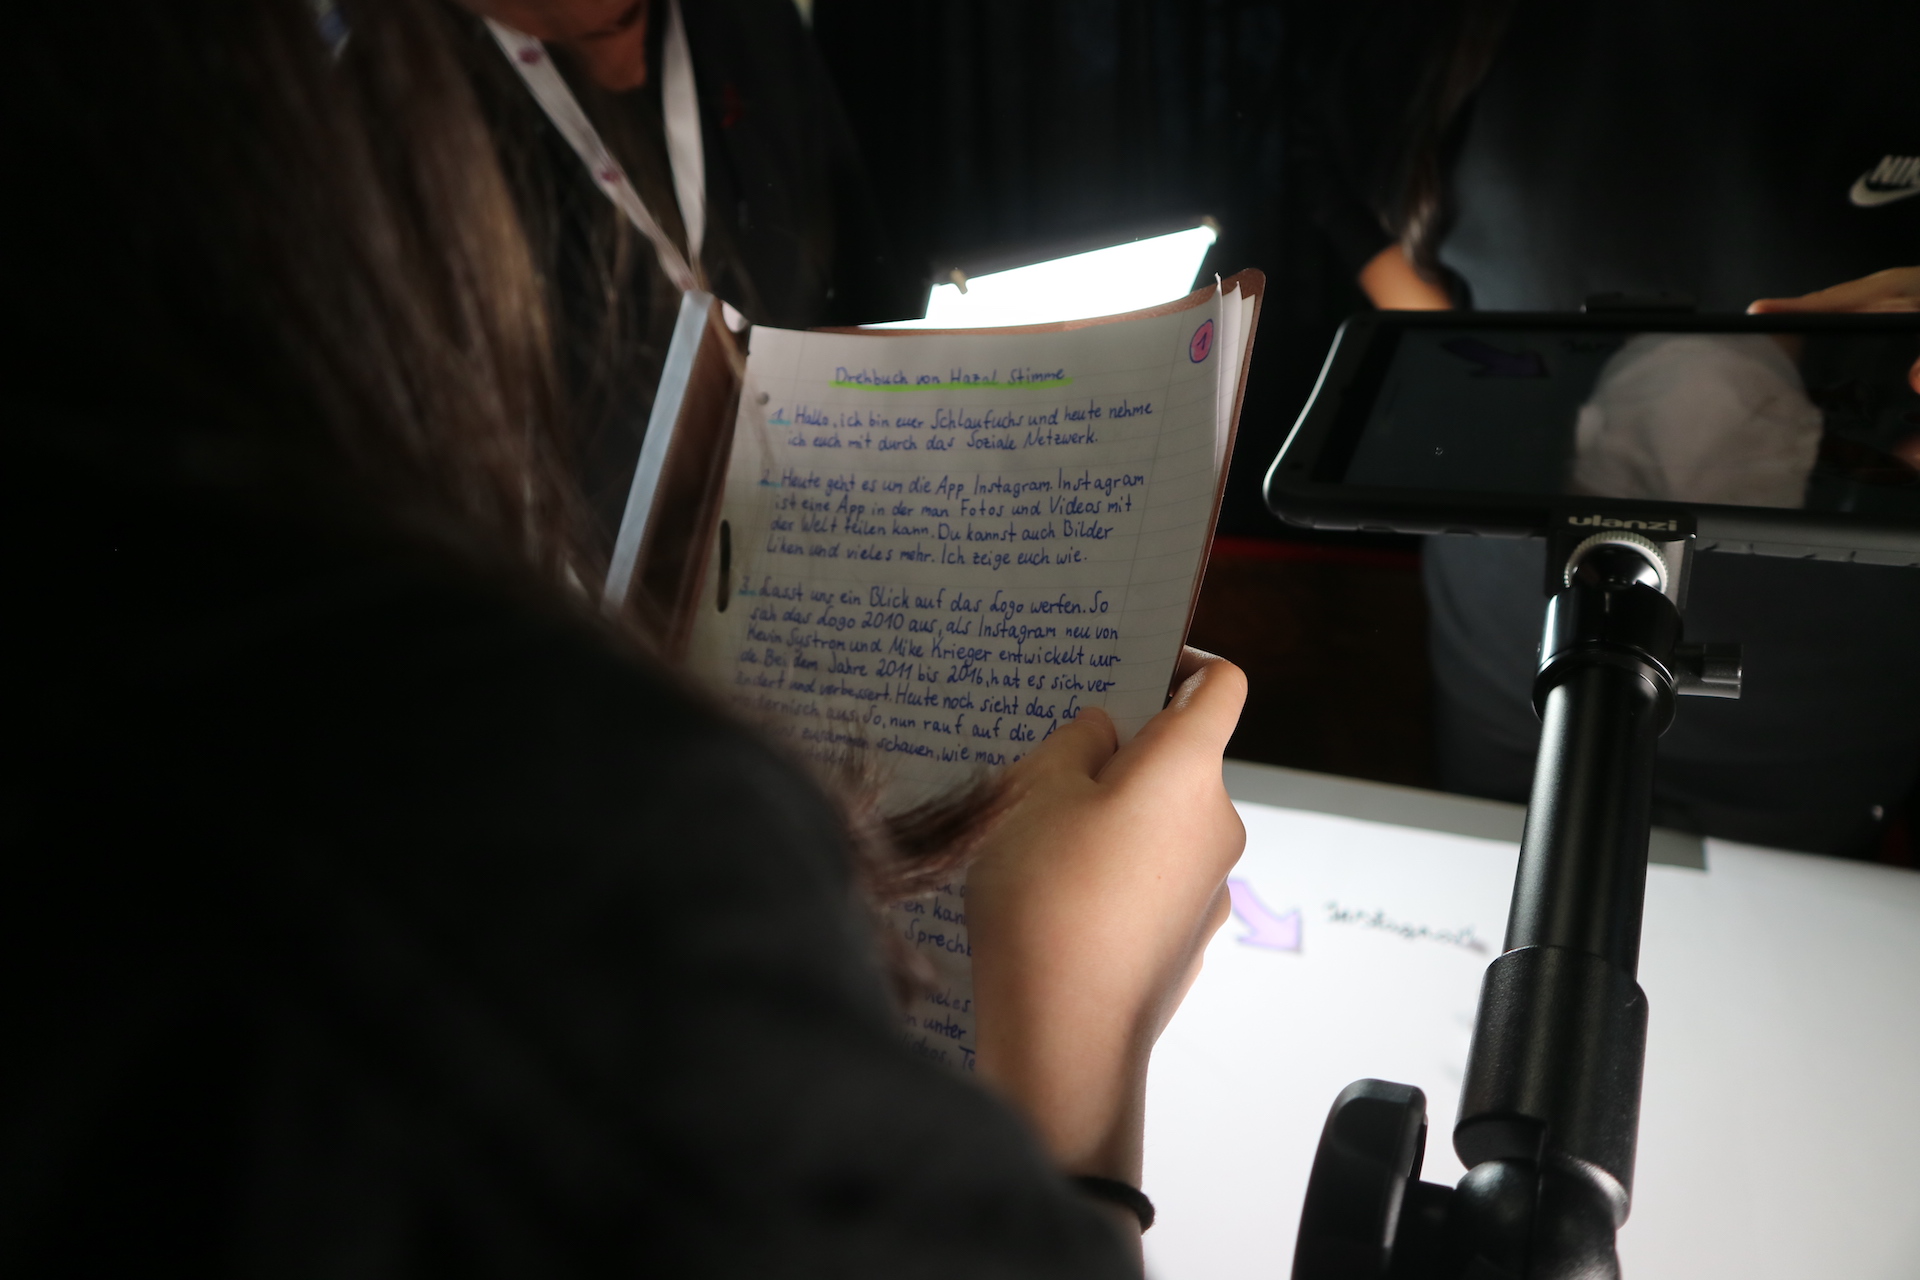 1
Drehbuch von Hazal Stimme
1. Hallo, ich bin euer Schlaufuchs und heute nehme
ich euch mit durch das Soziale Netzwerk.
2. Heute geht es um die App Instagram. Instagram
ist eine App in der man Fotos und Videos mit
der Welt teilen kann. Du kannst auch Bilder
liken und vieles mehr. Ich zeige euch wie.
3. Lasst uns ein Blick auf das Logo werfen. So
sah das Logo 2010 aus, als Instagram neu von
Kevin Systrom und Mike Krieger entwickelt wur-
de. Bei dem Jahre 2011 bis 2016, hat es sich ver
ändert und verbessert. Heute noch sieht das
aus. So, nun rauf auf die
zusammen schauen, wie man
kan
Sprech
unter
Te
NIK
ulanzi